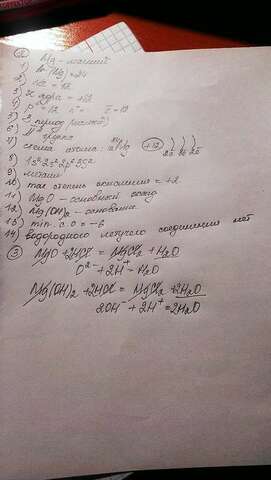 ② Mg - магний
1) Ar(Mg) = 24
2) №=12
3) Z ядра = +12
4) p⁺=12 e⁻=12
5) 3 период (малый)
6) II группа
7) схема атома: Mg +12 ) ) ) 2e 8e 2e
8) 1s²2s²2p⁶3s²
9) металл
10) max степень окисления = +2
11) MgO - основный оксид
12) Mg(OH)₂ - основание
13) min. с.о = -6
14) водородного летучего соединения нет
③ MgO + 2HCl = MgCl₂ + H₂O
O²⁻ + 2H⁺ = H₂O
Mg(OH)₂ + 2HCl = MgCl₂ + 2H₂O
2OH⁻ + 2H⁺ = 2H₂O